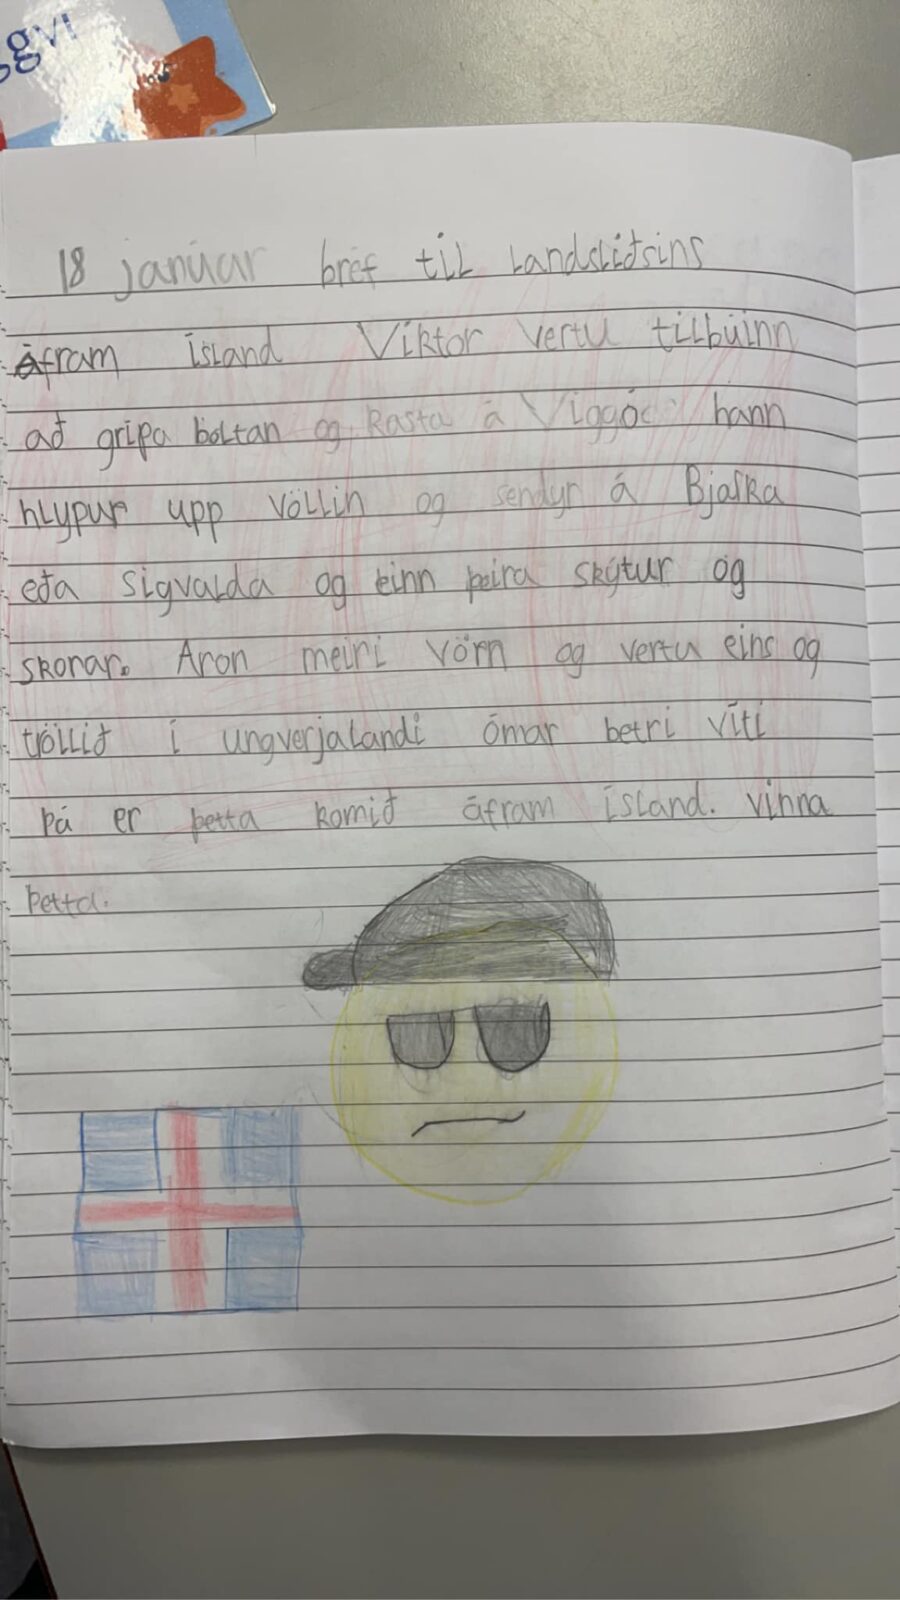 ggvi
18 janúar bréf til Landsliðsins
Áfram Ísland Viktor vertu tilbúinn
að gripa boltan og Kasta á Viggó hann
hlypur upp völlin og sendyr á Bjarka
eða Sigvalda og einn þeira skýtur og
skorar. Aron meiri vörn og vertu eins og
tröllið í ungverjalandi ómar betri víti
Þá er þetta komið áfram ísland. vinna
Þetta.